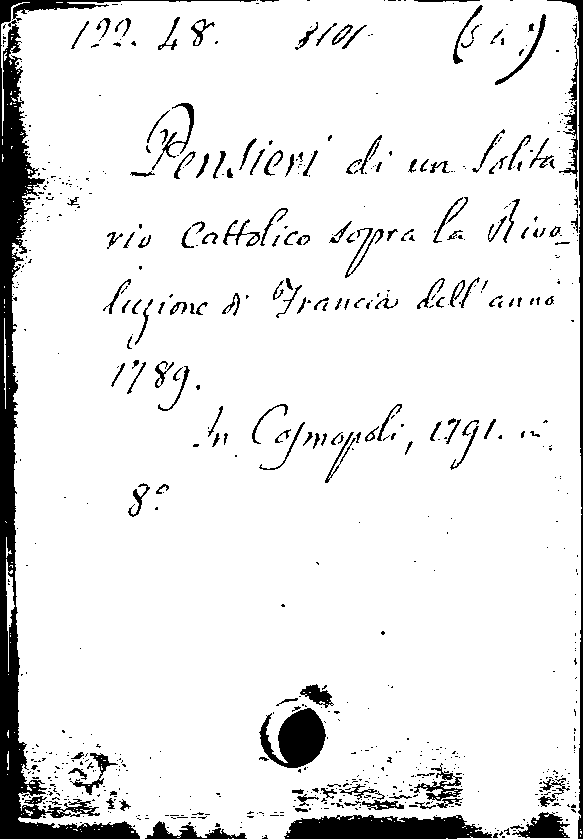 122. 48. 8101 (s a.)
Pensieri di un Solita_
rio Cattolico sopra la Rivo_
luzione di Francia dell'anno
1789.
In Cosmopoli, 1791. in
8º